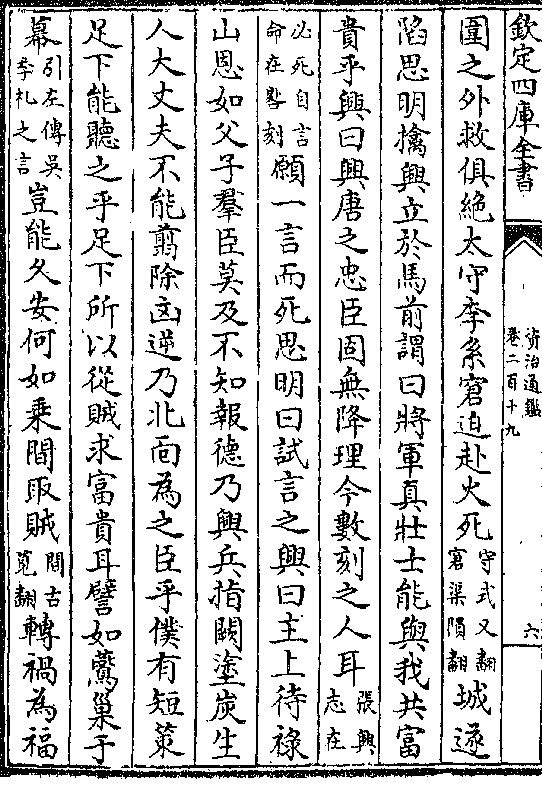 欽定四庫全書
資治通鑑
卷二百十九
六
圍之外救俱絶太守李系窘迫赴火死守式又翻窘渠隕翻城遂
陷思明擒興立於馬前謂曰將軍真壯士能與我共富
貴乎興曰興唐之忠臣固無降理今數刻之人耳張興志在
必死自言命在晷刻願一言而死思明曰試言之興曰主上待禄
山恩如父子羣臣莫及不知報德乃興兵指闕塗炭生
人大丈夫不能翦除凶逆乃北面為之臣乎僕有短策
足下能聽之乎足下所以從賊求富貴耳譬如鷰巢于
幕引左傳吳季札之言豈能久安何如乘間取賊間古莧翻轉禍為福